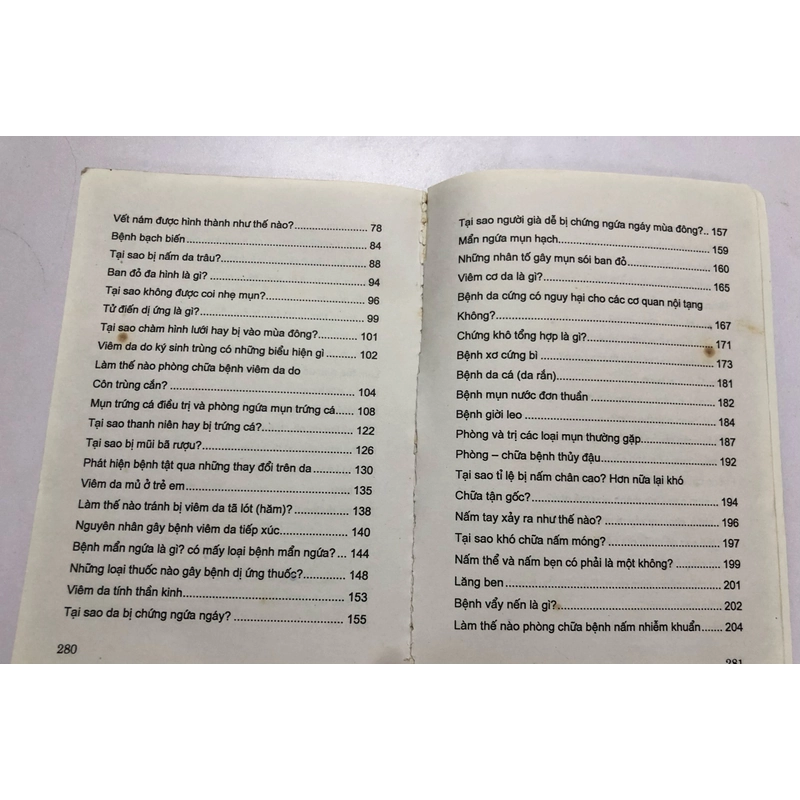 Vết nám được hình thành như thế nào? 78
Bệnh bạch biến 84
Tại sao bị nấm da trâu? 88
Ban đỏ đa hình là gì? 94
Tại sao không được coi nhẹ mụn? 96
Từ điển dị ứng là gì? 99
Tại sao chàm hình lưới hay bị vào mùa đông? 101
Viêm da do ký sinh trùng có những biểu hiện gì 102
Làm thế nào phòng chữa bệnh viêm da do
Côn trùng cắn? 104
Mụn trứng cá điều trị và phòng ngừa mụn trứng cá 108
Tại sao thanh niên hay bị trứng cá? 122
Tại sao bị mũi bã rượu? 126
Phát hiện bệnh tật qua những thay đổi trên da 130
Viêm da mủ ở trẻ em 135
Làm thế nào tránh bị viêm da tã lót (hăm)? 138
Nguyên nhân gây bệnh viêm da tiếp xúc 140
Bệnh mẩn ngứa là gì? có mấy loại bệnh mẩn ngứa? ... 144
Những loại thuốc nào gây bệnh dị ứng thuốc? 148
Viêm da tính thần kinh 153
Tại sao da bị chứng ngứa ngáy? 155
280
Tại sao người già dễ bị chứng ngứa ngáy mùa đông?.. 157
Mẩn ngứa mụn hạch 159
Những nhân tố gây mụn sói ban đỏ 160
Viêm cơ da là gì? 165
Bệnh da cứng có nguy hại cho các cơ quan nội tạng
Không? 167
Chứng khô tổng hợp là gì? 171
Bệnh xơ cứng bì 173
Bệnh da cá (da rắn) 181
Bệnh mụn nước đơn thuần 182
Bệnh giời leo 184
Phòng và trị các loại mụn thường gặp 187
Phòng – chữa bệnh thủy đậu 192
Tại sao tỉ lệ bị nấm chân cao? Hơn nữa lại khó
Chữa tận gốc? 194
Nấm tay xảy ra như thế nào? 196
Tại sao khó chữa nấm móng? 197
Nấm thể và nấm bẹn có phải là một không? 199
Lăng ben 201
Bệnh vẩy nến là gì? 202
Làm thế nào phòng chữa bệnh nấm nhiễm khuẩn 204
281